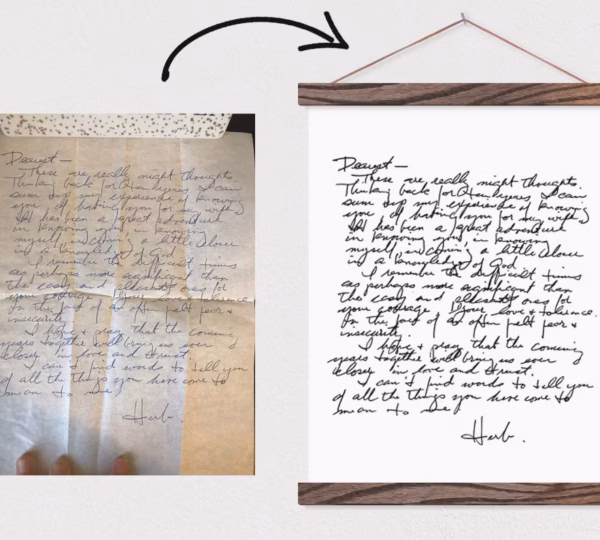 Dearest —
These are really night thoughts.
Thinking back for years I can
sum up my experience of knowing
you, of having you for my wife
It has been a great adventure
in knowing you, in knowing
myself, in coming a little closer
I remember the difficult times
as perhaps more significant than
the easy and pleasant ones for
your courage & your love &
In the face of so often felt fear &
insecurity.
I hope & pray that the coming
years together will bring us ever
closer in love and trust.
I can't find words to tell you
of all the things you have come to
mean to me
Herb.
Dearest —
These are really night thoughts.
Thinking back for years I can
sum up my experience of knowing
you, of having you for my wife
It has been a great adventure
in knowing you, in knowing
myself, in coming a little closer
in a knowledge of God
I remember the difficult times
as perhaps more significant than
the easy and pleasant ones for
your courage & your love & tolerance.
In the face of so often felt fear &
insecurity.
I hope & pray that the coming
years together will bring us ever
closer in love and trust.
I can't find words to tell you
of all the things you have come to
mean to me
Herb.